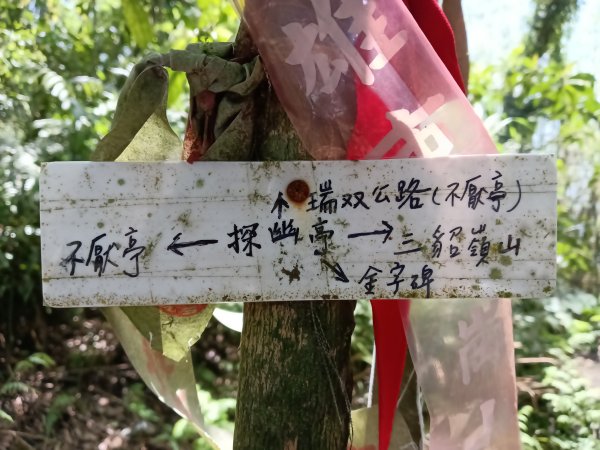 瑞双公路(不厭亭)
不厭亭 ← 探幽亭 → 三貂嶺山
↘ 金字碑
雄